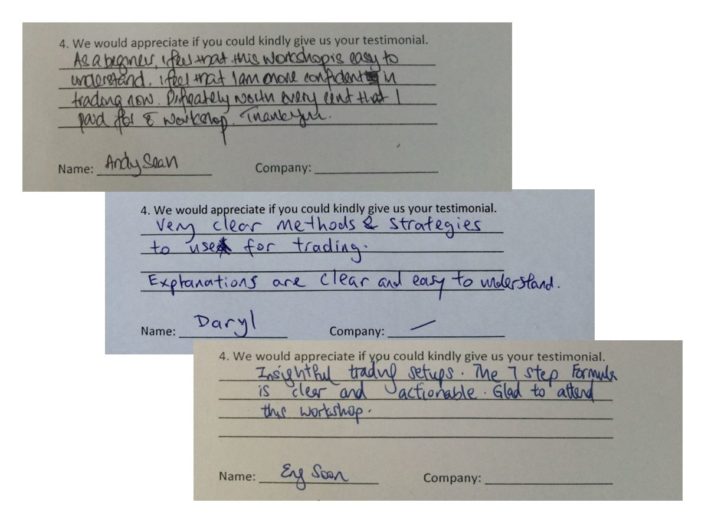 4. We would appreciate if you could kindly give us your testimonial.
As a beginner, i feel that this workshop is easy to
understand. i feel that I am more confident in
trading now. Difinately worth every cent that I
paid for & workshop. Thank you.
Name: Andy Sean
Company:
4. We would appreciate if you could kindly give us your testimonial.
Very clear methods & strategies
to use for trading.
Explanations are clear and easy to understand.
Name: Daryl
Company:
4. We would appreciate if you could kindly give us your testimonial.
Insightful trading setups. The 7 step Formula
is clear and actionable. Glad to attend
this workshop.
Name: Eng Soon
Company: